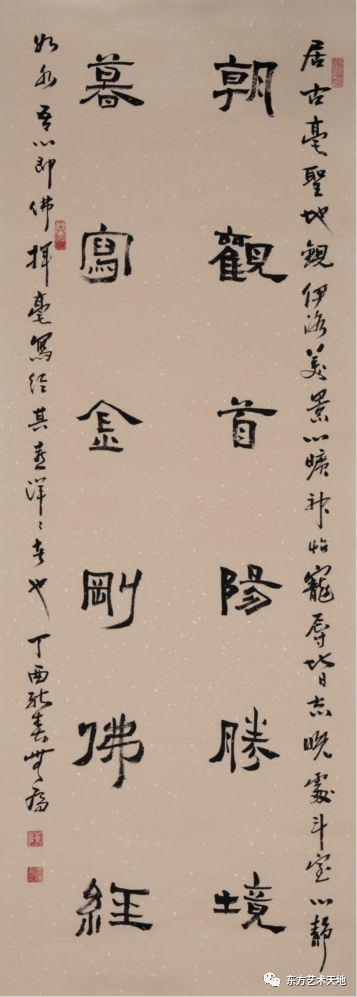 居古亳聖地觀伊洛美景心曠神怡寵辱皆忘晚處斗室心静
朝觀首陽勝境
暮寫金剛佛經
如水吾心即佛揮毫寫經其喜洋〻者也 丁酉
东方艺术天地